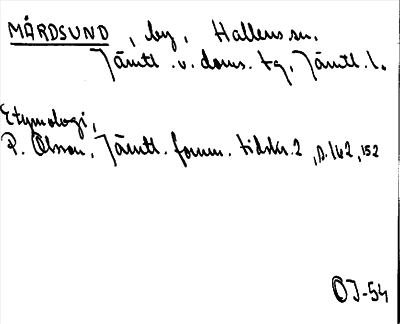 MÄRDSUND, by, Hallens sn.
Jämtl. v. doms. tg, Jämtl. l.
Etymologi,
P. Olsson, Jämtl. fornm. tidskr. 2, s. 142, 152
OJ-54